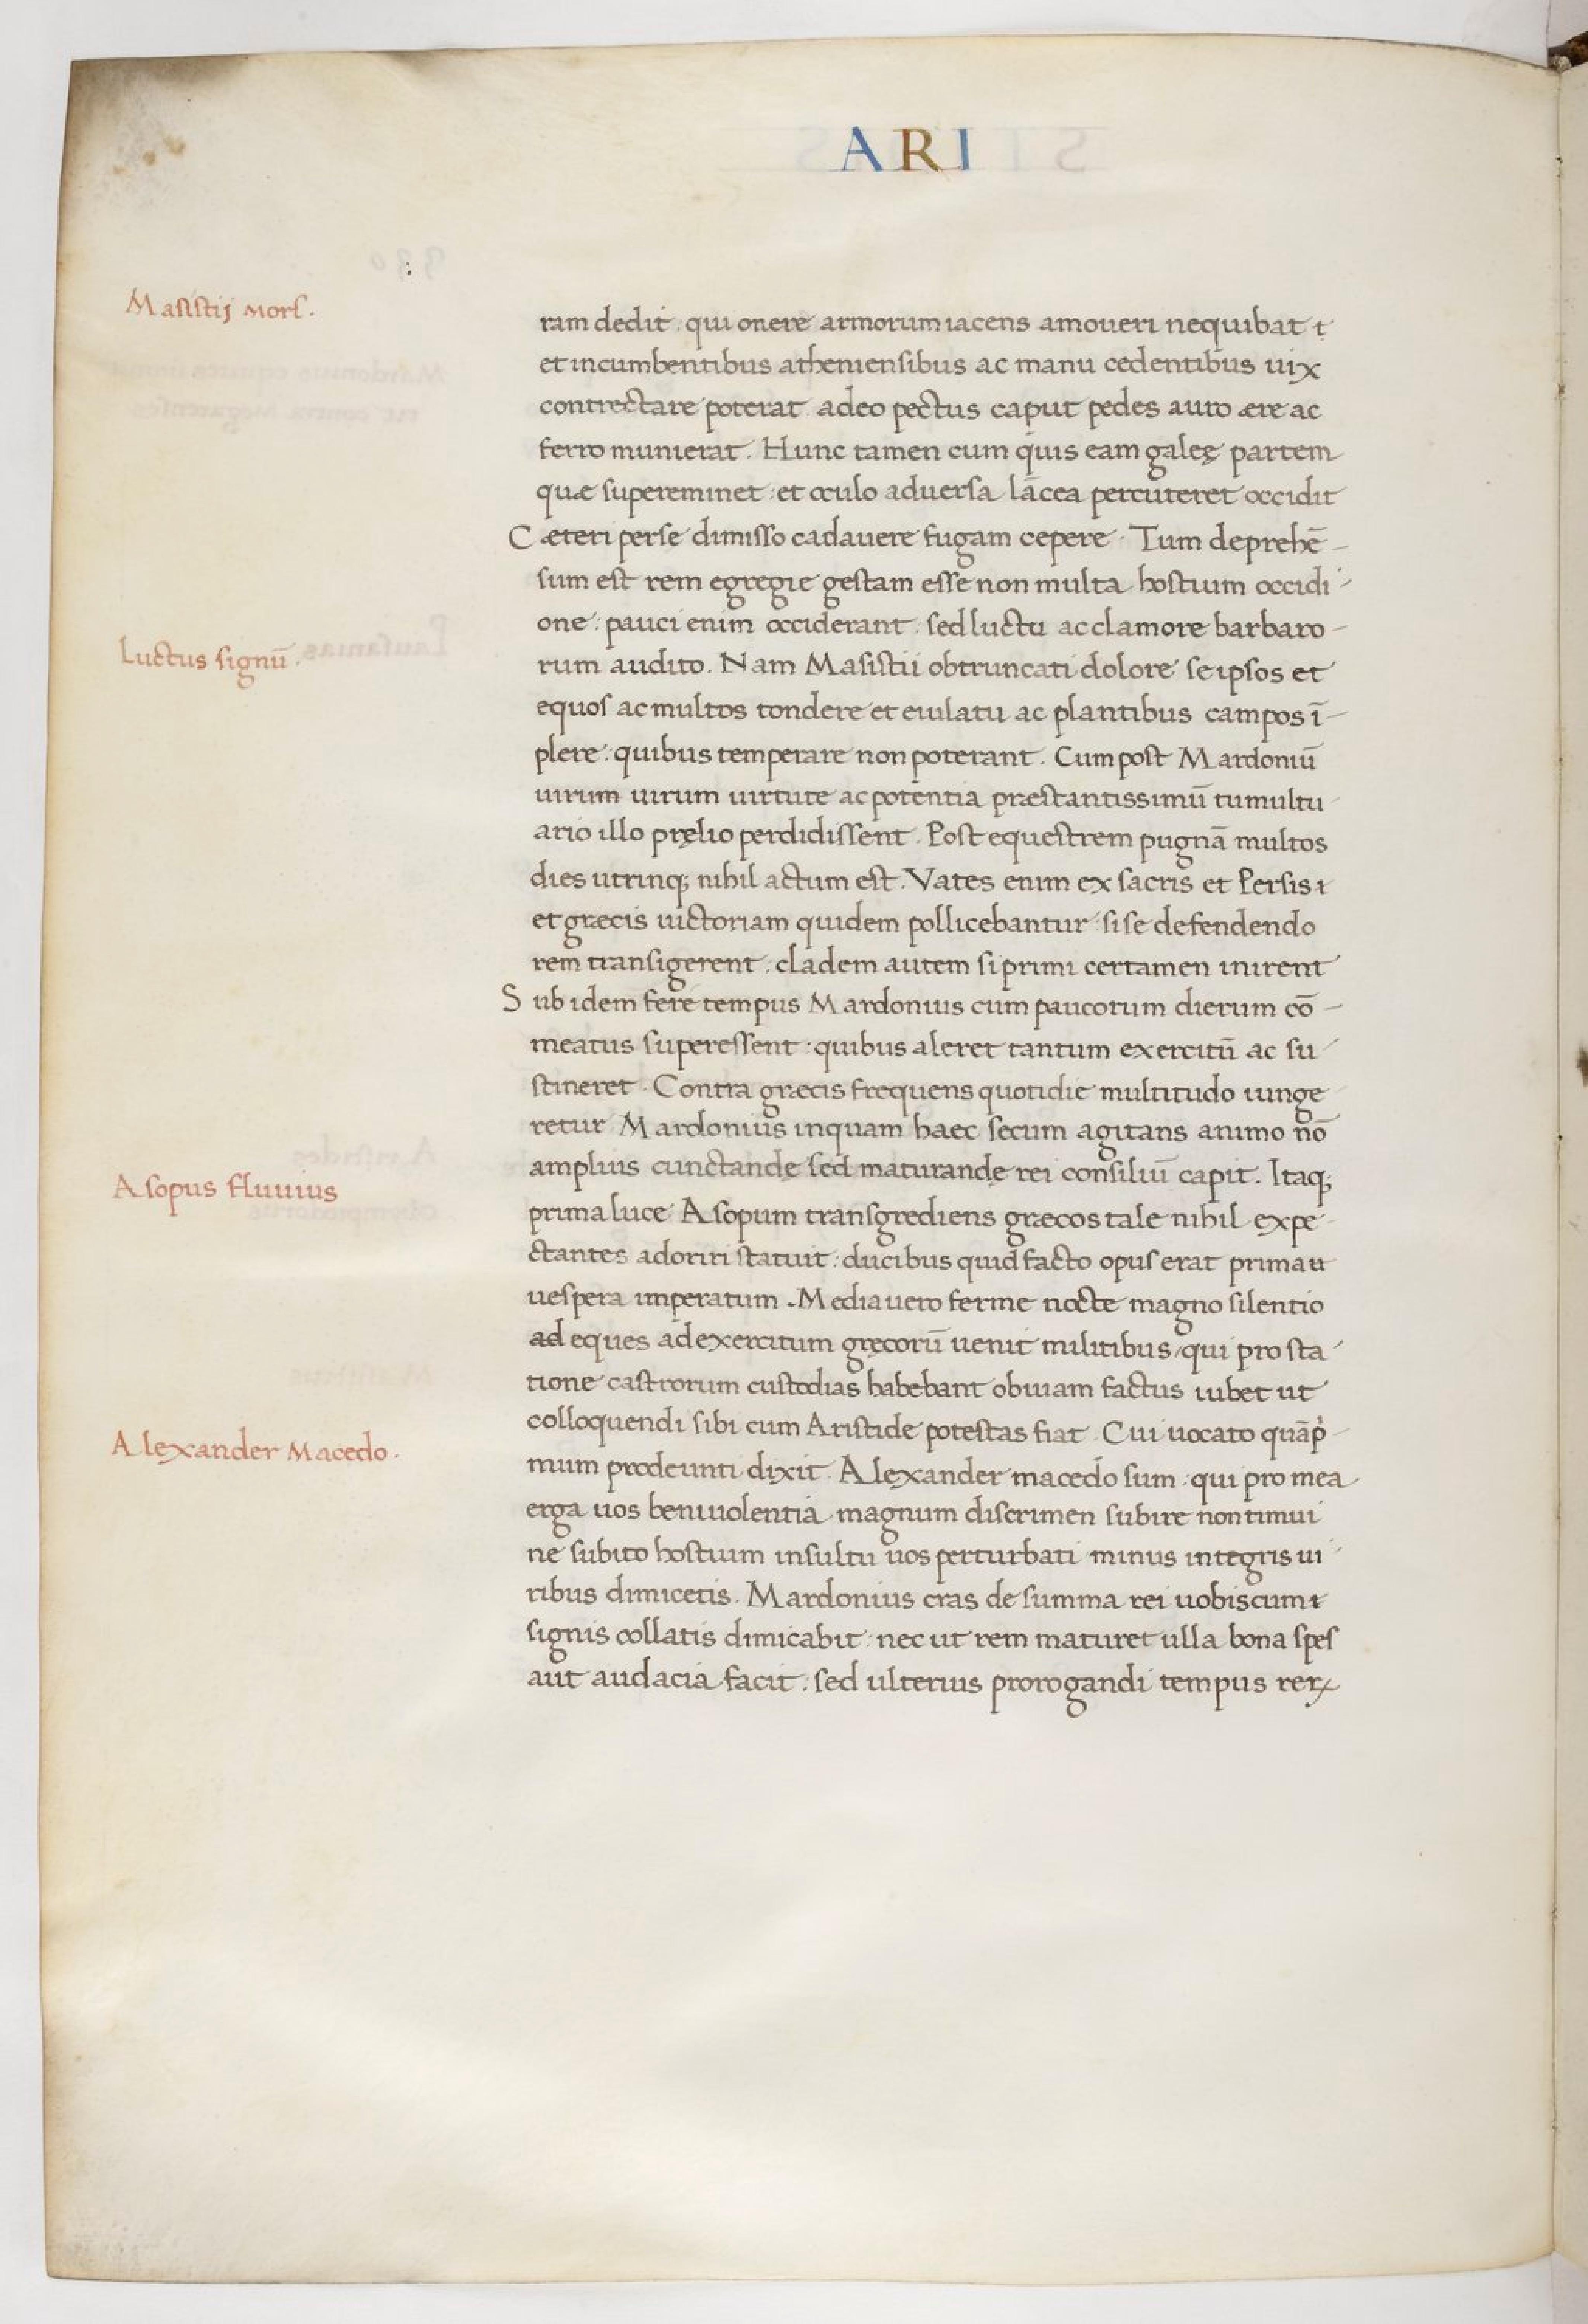 ARI
Masistij mors.
ram dedit. qui onere armorum iacens amoueri nequibat t
et incumbentibus atheniensibus ac manu cedentibus uix
contrectare poterat adeo pectus caput pedes auro ære ac
ferro munierat. Hunc tamen cum quis eam galeę partem
quæ supereminet: et oculo aduersa lācea percuteret occidit
Cæteri perse dimisso cadauere fugam cepere. Tum deprehē-
sum est rem egregie gestam esse non multa hostium occidi
one: pauci enim occiderant. sed luctu ac clamore barbaro-
Luctus signū.
rum audito. Nam Masistii obtruncati dolore se ipsos et
equos ac multos tondere et eiulatu ac plantibus campos ī-
plere: quibus temperare non poterant. Cum post Mardoniū
uirum uirum uirtute ac potentia præstantissimū tumultu
ario illo pręlio perdidissent. Post equestrem pugnā multos
dies utrinq; nihil actum est. Vates enim ex sacris et Persis t
et græcis uictoriam quidem pollicebantur: si se defendendo
rem transigerent: cladem autem si primi certamen inirent
Sub idem fere tempus Mardonius cum paucorum dierum cō-
meatus superessent: quibus aleret tantum exercitū ac su
stineret. Contra græcis frequens quotidie multitudo iunge
retur Mardonius inquam haec secum agitans animo nō
amplius cunctandę sed maturandę rei consiliū capit. Itaq;
Asopus fluuius
prima luce Asopum transgrediens græcos tale nihil expe
ctantes adoriri statuit: ducibus quid facto opus erat prima u
uespera imperatum. Media uero ferme nocte magno silentio
ad eques ad exercitum gręcorū uenit militibus/qui pro sta
tione castrorum custodias habebant obuiam factus iubet ut
colloquendi sibi cum Aristide potestas fiat. Cui uocato quāp̍-
Alexander Macedo.
mum prodeunti dixit. Alexander macedo sum: qui pro mea
erga uos beniuolentia magnum discrimen subire non timui
ne subito hostium insultu uos perturbati minus integris ui
ribus dimicetis. Mardonius cras de summa rei uobiscum t
signis collatis dimicabit: nec ut rem maturet ulla bona spes
aut audacia facit: sed ulterius prorogandi tempus reꝝ